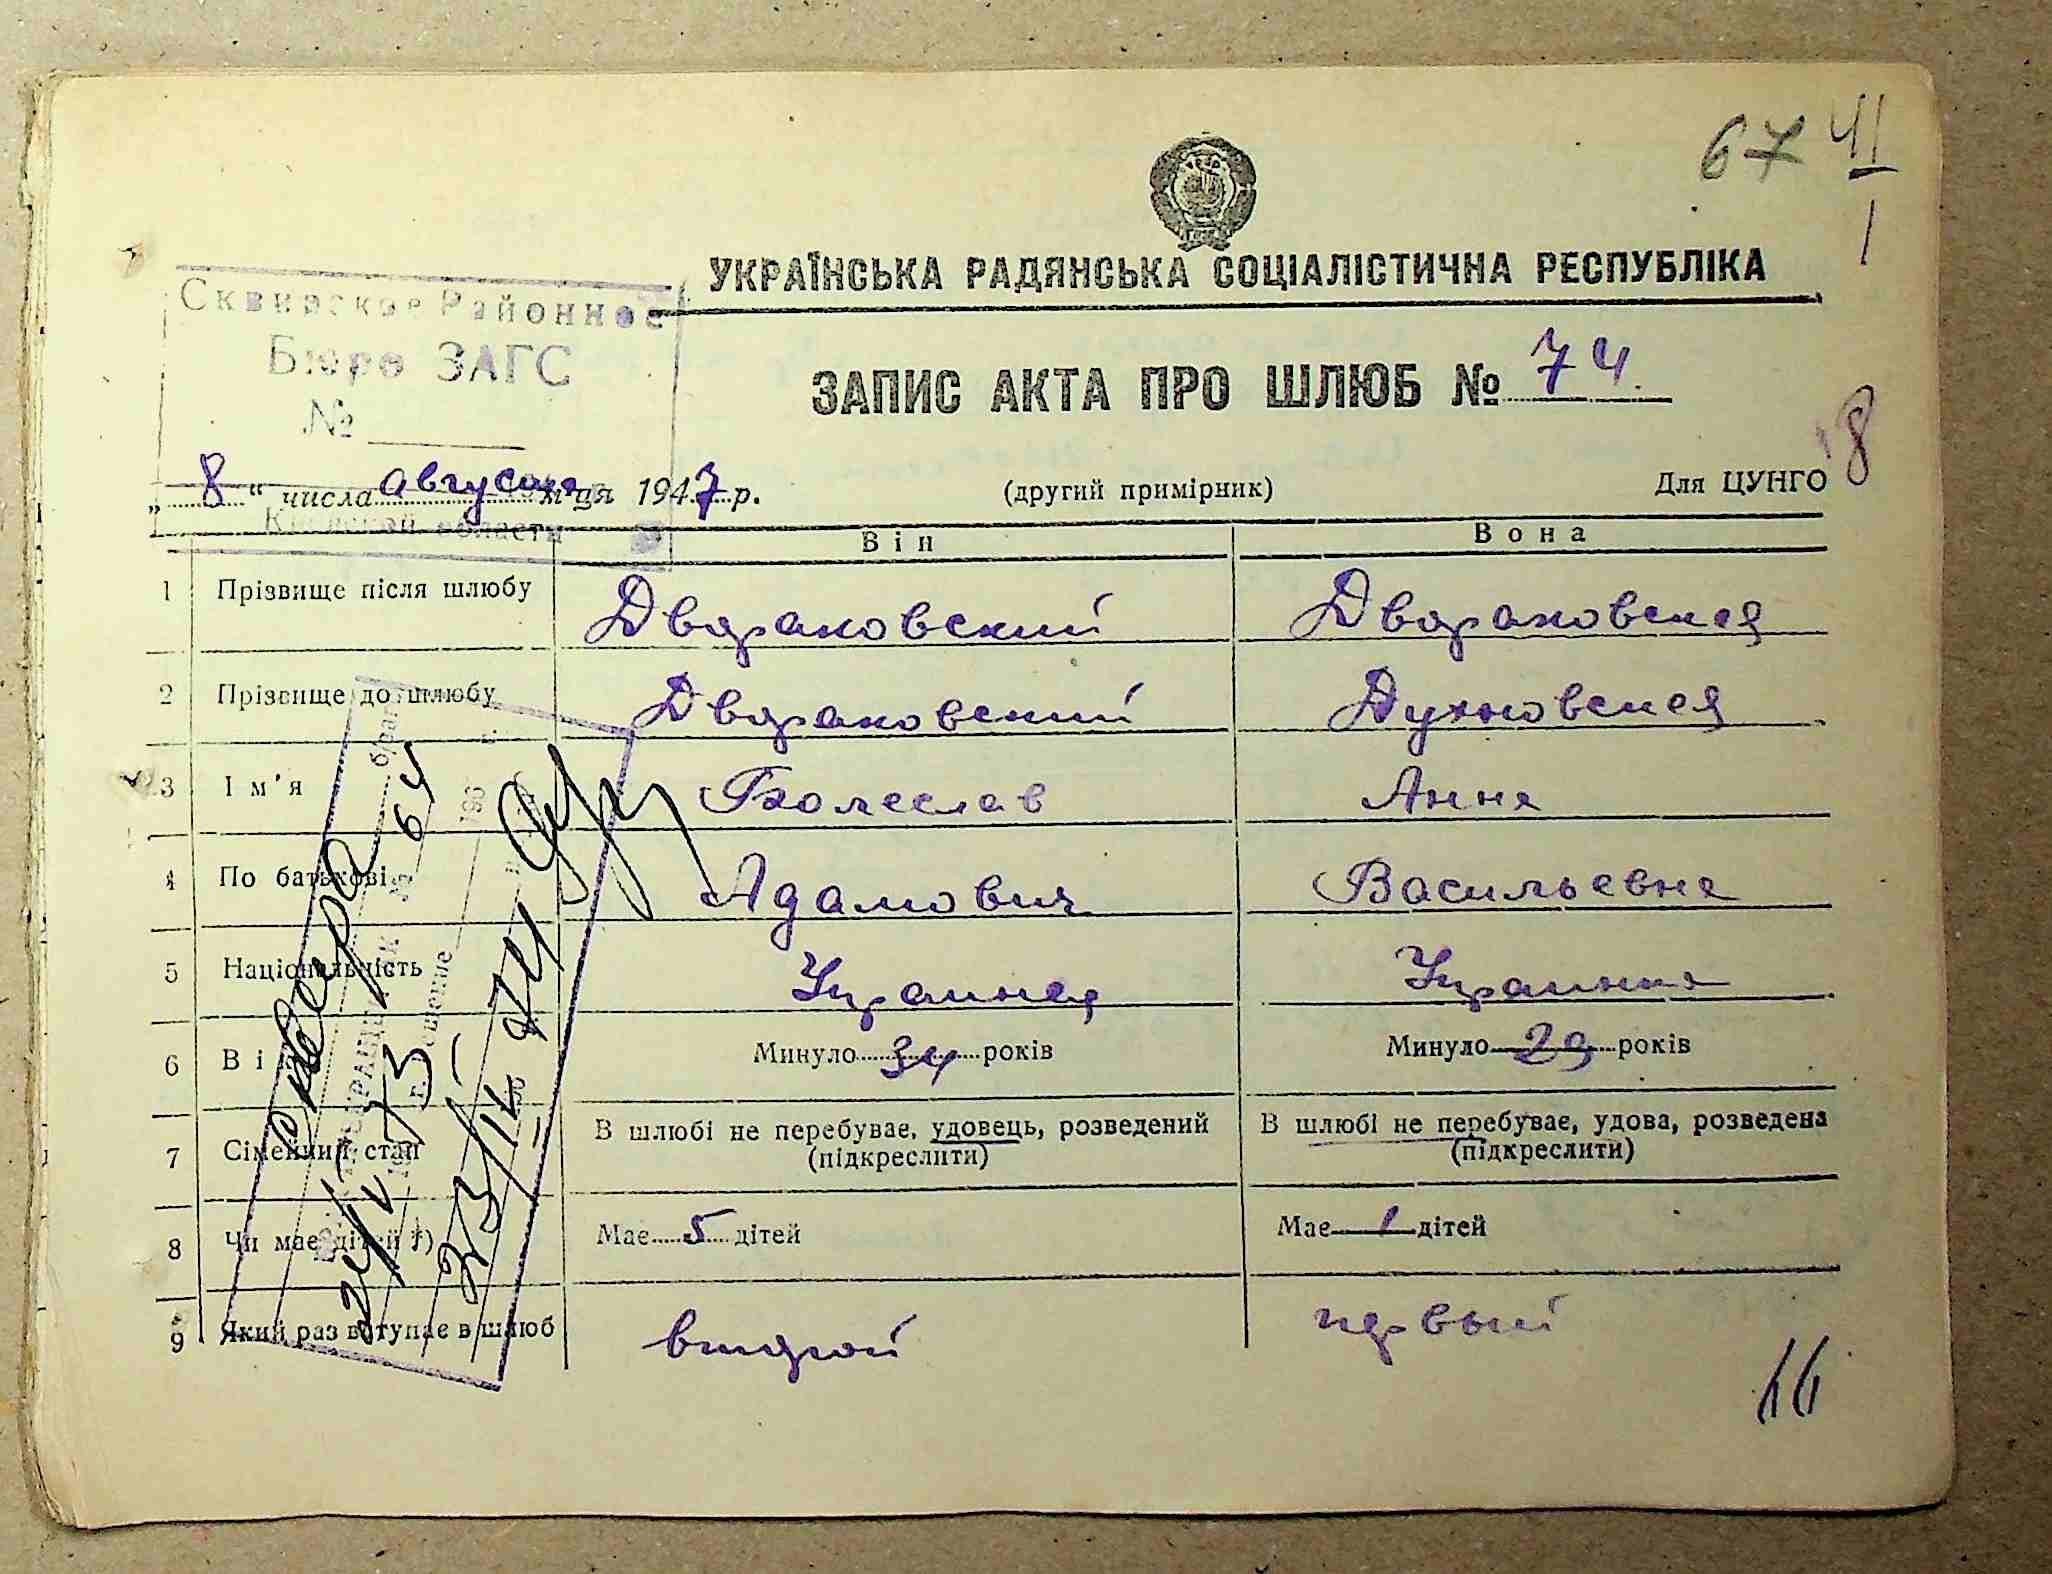 67 41
1
УКРАЇНСЬКА РАДЯНСЬКА СОЦІАЛІСТИЧНА РЕСПУБЛІКА
Сквирское Районное
Бюро ЗАГС
№
Киевской области
ЗАПИС АКТА ПРО ШЛЮБ № 74
18
„ 8 “ числа августа м-ця 1947 р. (другий примірник) Для ЦУНГО
Він Вона
1 Прізвище після шлюбу Двораковский Двораковская
2 Прізвище до шлюбу Двораковский Духновская
3 Ім'я Болеслав Анна
4 По батькові Адамович Васильевна
5 Національність Украинец Украинка
6 Вік Минуло 34 років Минуло 29 років
7 Сімейний стан В шлюбі не перебуває, удовець, розведений (підкреслити) В шлюбі не перебуває, удова, розведена (підкреслити)
8 Чи має дітей Має 5 дітей Має 1 дітей
9 Який раз вступає в шлюб второй первый
Сквера
64
16